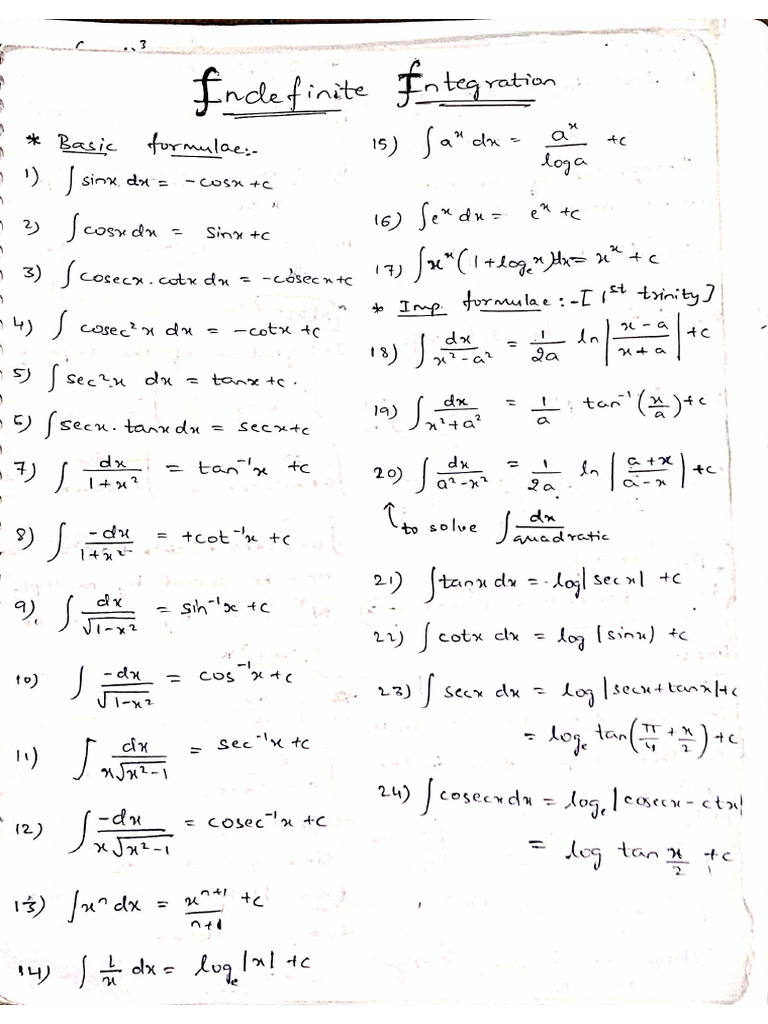 Indefinite Integration
* Basic formulae:-
1) ∫ sinx dx = -cosx +c
2) ∫ cosx dx = sinx +c
3) ∫ cosecx . cotx dx = -cosecx +c
4) ∫ cosec²x dx = -cotx +c
5) ∫ sec²x dx = tanx +c .
6) ∫ secx . tanx dx = secx +c
7) ∫ dx/(1+x²) = tan⁻¹x +c
8) ∫ -dx/(1+x²) = +cot⁻¹x +c
9) ∫ dx/√(1-x²) = sin⁻¹x +c
10) ∫ -dx/√(1-x²) = cos⁻¹x +c
11) ∫ dx/(x√(x²-1)) = sec⁻¹x +c
12) ∫ -dx/(x√(x²-1)) = cosec⁻¹x +c
13) ∫ xⁿ dx = xⁿ⁺¹/(n+1) +c
14) ∫ 1/x dx = logₑ|x| +c
15) ∫ aˣ dx = aˣ/log a +c
16) ∫ eˣ dx = eˣ +c
17) ∫ xˣ (1+logₑx) dx = xˣ +c
* Imp. formulae :- [1st trinity]
18) ∫ dx/(x²-a²) = 1/2a ln |(x-a)/(x+a)| +c
19) ∫ dx/(x²+a²) = 1/a tan⁻¹(x/a) +c
20) ∫ dx/(a²-x²) = 1/2a ln |(a+x)/(a-x)| +c
↑ to solve ∫ dx/quadratic
21) ∫ tanx dx = log|secx| +c
22) ∫ cotx dx = log |sinx) +c
23) ∫ secx dx = log |secx+tanx| +c
= logₑ tan(π/4 + x/2) +c
24) ∫ cosecx dx = logₑ |cosecx - ctx|
= log tan x/2 +c